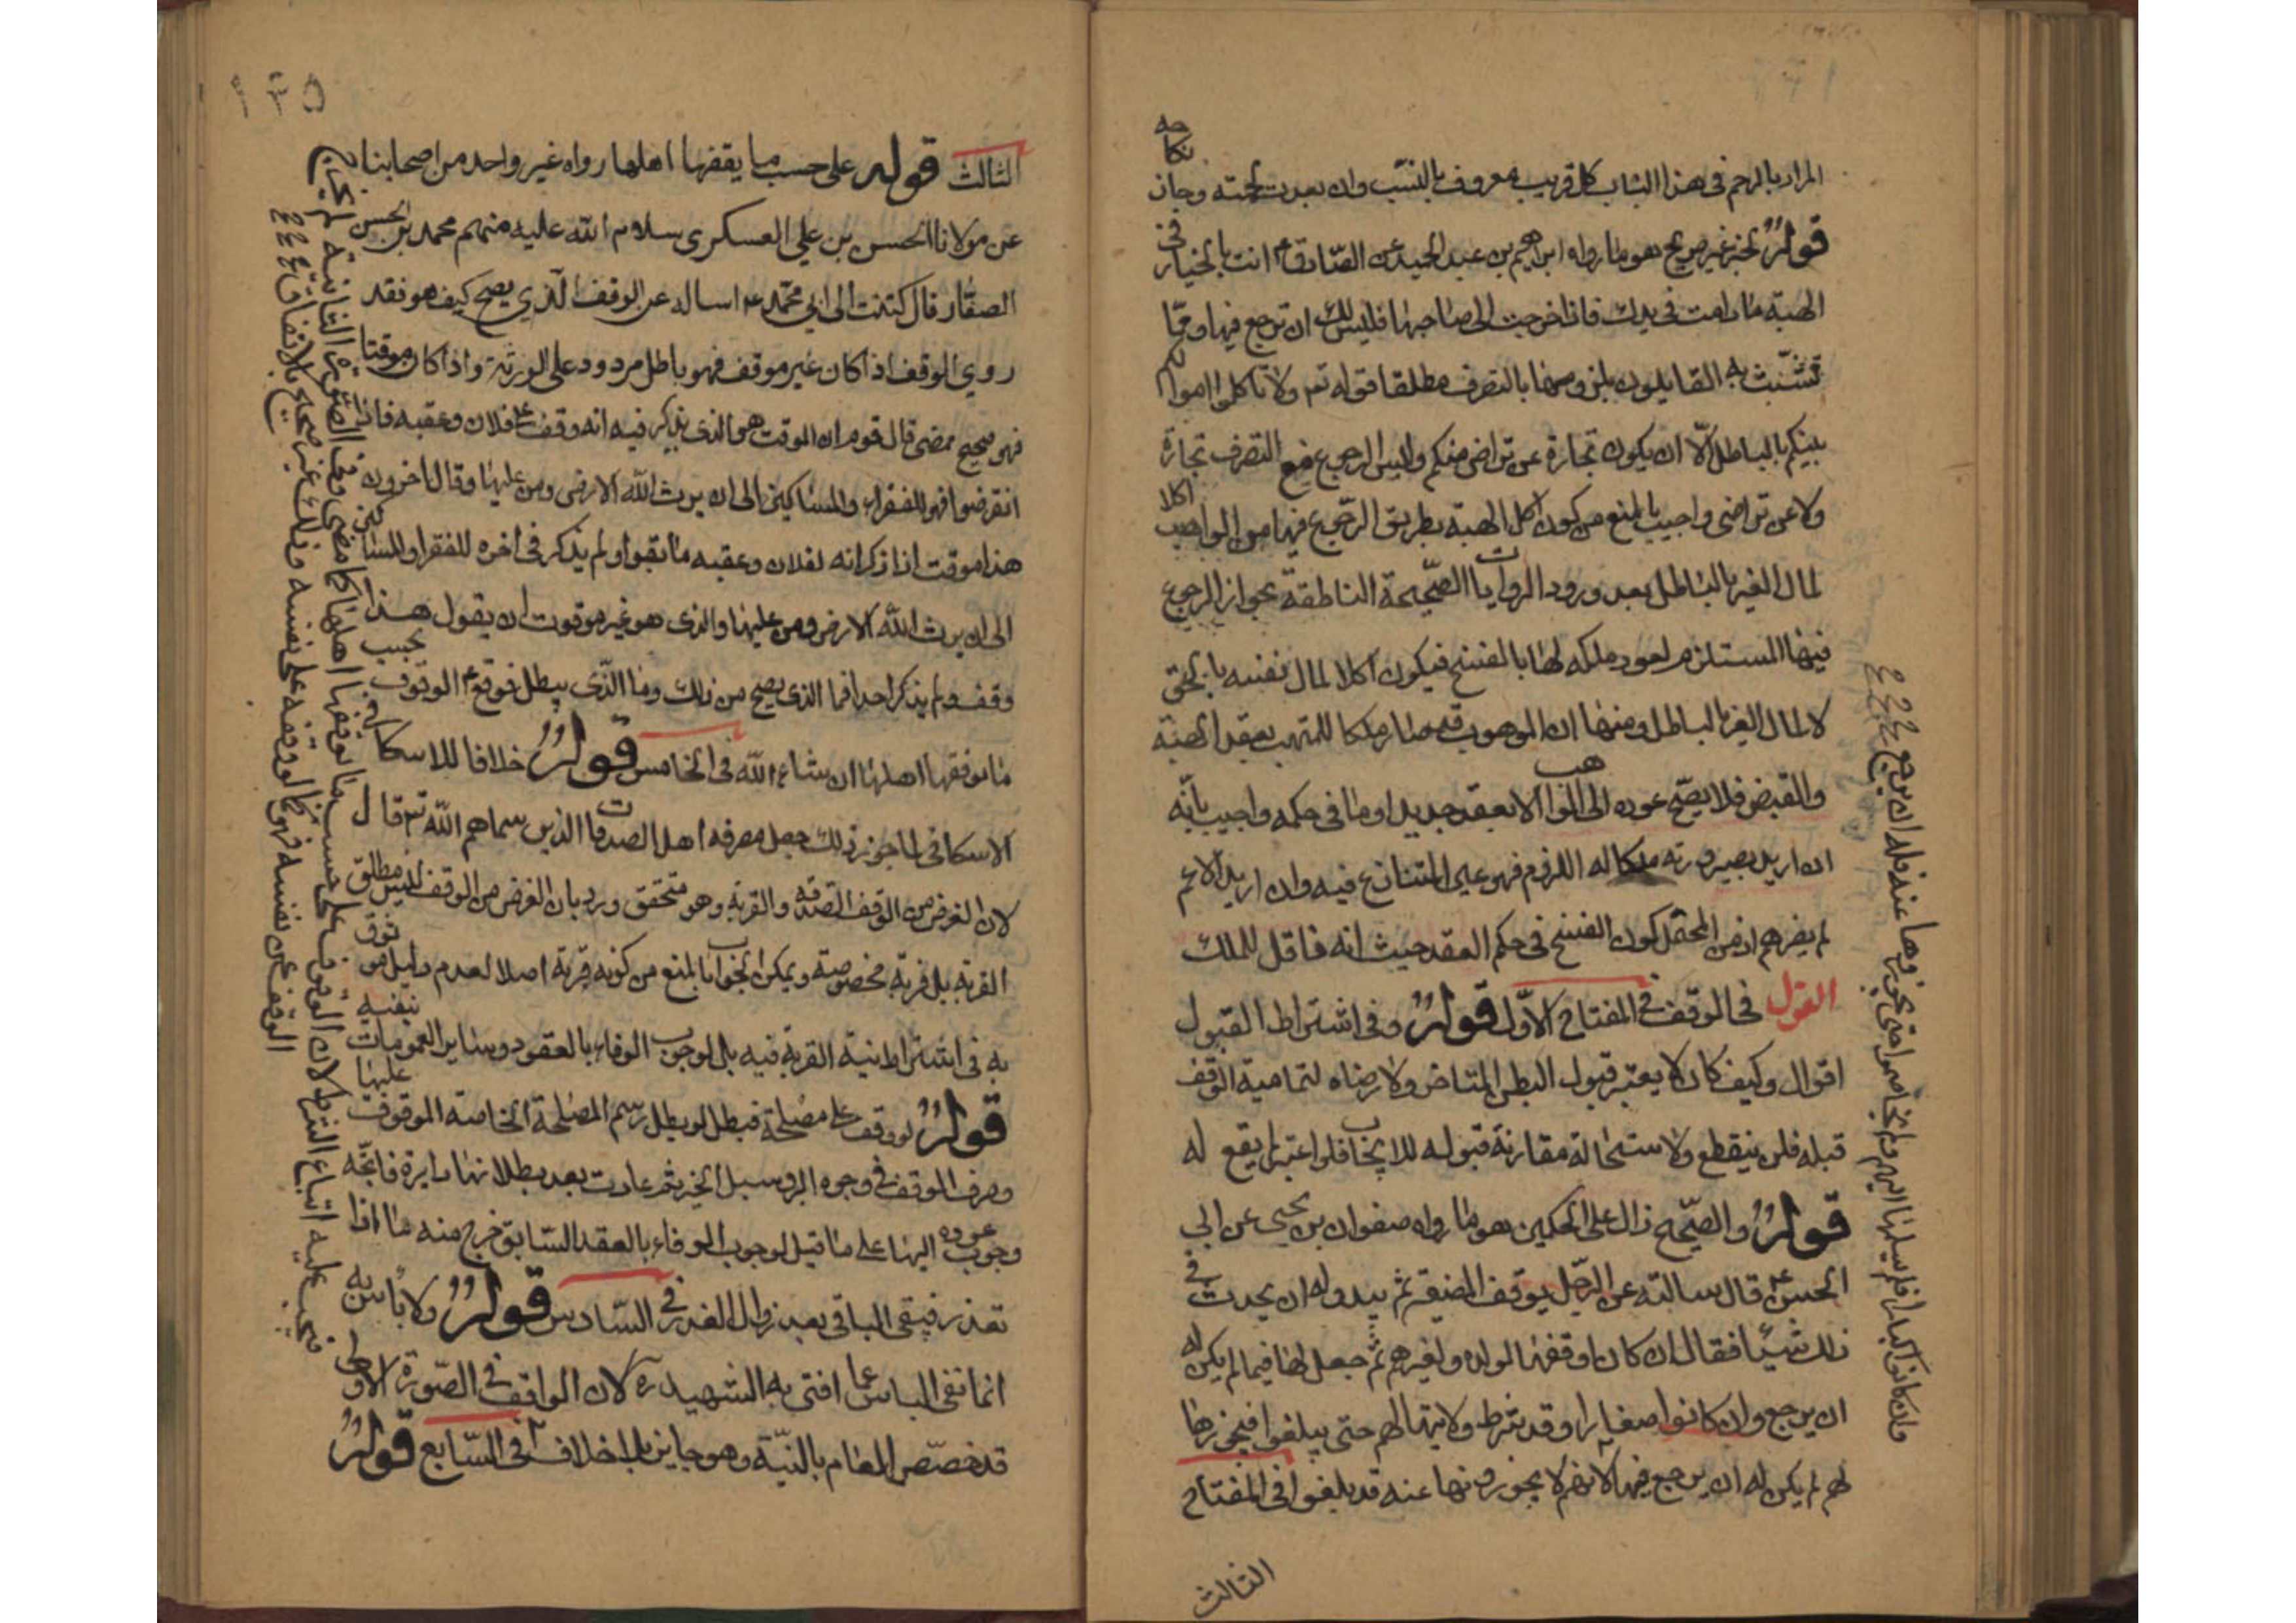 نكاحه
المراد بالرحم في هذا الباب كل قريب معروف بالنسب وان بعدت لحمته وجاز
قوله لخبر غير صريح هو ما رواه ابراهيم بن عبد الحميد عن الصادق ع انت بالخيار في
الهبة ما دامت في يدك فاذا خرجت الى صاحبها فليس لك ان ترجع فيها ومما
تشبث به القايلون بلزومها بالتصرف مطلقا قوله تع ولا تاكلوا اموالكم
بينكم بالباطل الا ان يكون تجارة عن تراض منكم وليس الرجوع مع التصرف تجارة
ولا عن تراضى واجيب بالمنع من كون اكل الهبة بطريق الرجوع فيها من الواهب اكلا
لمال الغير بالباطل بعد ورود الروايات الصحيحة الناطقة بجواز الرجوع
فيها المستلزم لعود ملكه لها بالفسخ فيكون اكلا لمال نفسه بالحق
لا لمال الغير بالباطل ومنها ان الموهوب قد صار ملكا للمتهب بعقد الهبة
والقبض فلا يصح عوده الى الواهب الا بعقد جديد او ما في حكمه واجيب بانه
ان اريد بصيرورته ملكا له اللزوم فهو عين المتنازع فيه وان اريد الاعم
لم يضرهم اذ من المحتمل كون الفسخ في حكم العقد حيث انه ناقل للملك
القول في الوقف في المفتاح الاول قوله وفي اشتراط القبول
اقوال وكيف كان لا يعتبر قبول البطن المتاخر ولا رضاه لتمامية الوقف
قبله فلن ينقطع ولاستحالة مقارنة قبوله للايجاب فلو اعتبر لم يقع له
قوله والصحيح دال على الحكمين هو ما رواه صفوان بن يحيى عن ابي
الحسن ع قال سالته عن الرجل يوقف الضيعة ثم يبدو له ان يحدث في
ذلك شيئا فقال ان كان اوقفها لولده ولغيرهم ثم جعل لها قيما لم يكن له
ان يرجع وان كانوا صغارا وقد شرط ولايتها لهم حتى يبلغوا فيحوزها
لهم لم يكن له ان يرجع فيها لانهم لا يحوزونها عنه قد بلغوا في المفتاح
الثالث
وان كانوا كبارا فلم يسلمها اليهم ولم يخاصموا حتى يحوزوها عنه فله ان يرجع
١٣٥
الثالث قوله على حسب ما يقفها اهلها رواه غير واحد من اصحابنا
عن مولانا الحسن بن علي العسكرى سلام الله عليه منهم محمد بن الحسن
الصفار قال كتبت الى ابي محمد ع اساله عن الوقف الذي يصح كيف هو فقد
روي الوقف اذا كان غير موقف فهو باطل مردود على الورثة واذا كان موقتا
فهو صحيح ممضى قال قوم ان الموقت هو الذى يذكر فيه انه وقف على فلان وعقبه فاذا
انقرضوا فهو للفقراء والمساكين الى ان يرث الله الارض ومن عليها وقال اخرون
هذا موقت اذا ذكر انه لفلان وعقبه ما بقوا ولم يذكر في اخره للفقرا والمساكين
الى ان يرث الله الارض ومن عليها والذى هو غير موقوت ان يقول هذا
وقف ولم يذكر احدا فما الذى يصح من ذلك وما الذي يبطل فوقع ع الوقوف بحسب
ما يوقفها اهلها ان شاء الله في الخامس قوله خلافا للاسكافي
الاسكافى لما جوز ذلك جعل مصرفه اهل الصدقات الذين سماهم الله تع قال
لان الغرض من الوقف الصدقة والقربة وهو متحقق ورد بان الغرض من الوقف ليس مطلق
القربة بل قربة مخصوصة ويمكن الجواب بالمنع من كونه قربة اصلا لعدم دليل موثوق
به فى اشتراط نية القربة فيه بل لوجوب الوفاء بالعقود وساير العمومات ينفيه
قوله لو وقف على مصلحة فبطل لو بطل رسم المصلحة الخاصة الموقوف عليها
وصرف الوقف في وجوه البر وسبل الخير ثم عادت بعد بطلانها دايرة فاتجه
وجوب عوده اليها على ما قيل لوجوب الوفاء بالعقد السابق خرج منه ما اذا
تعذر فيبقى الباقي بعد زوال العذر في السادس قوله ولا باس به
انما نفى الباس عما افتى به الشهيد ره لان الواقف في الصورة الاولى
قد خصص العام بالنية وهو جايز بلا خلاف في السابع قوله